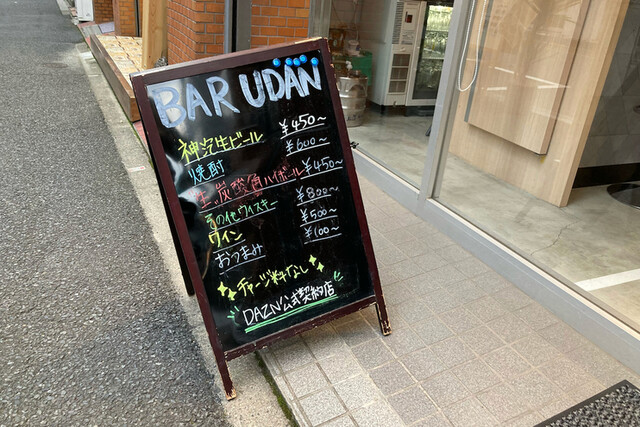 BAR UDAN
神泡生ビール ¥450〜
焼酎 ¥600〜
生、炭酸角ハイボール ¥450〜
その他ウイスキー ¥800〜
ワイン ¥500〜
おつまみ ¥100〜
チャージ料なし
DAZN公式契約店